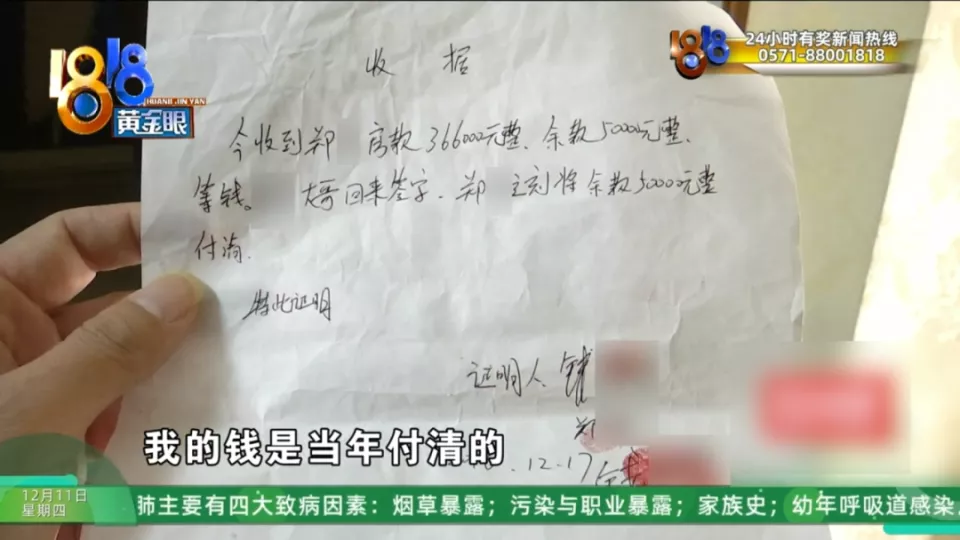 1818
HUANG JIN YAN
黄金眼
1818
24小时有奖新闻热线
0571-88001818
收据
今收到郑 房款366000元整、余款50000元整、
等钱 大哥回来签字、郑 立刻将余款50000元整
付清.
特此证明
证明人、钱
郑
.12.17
我的钱是当年付清的
12月11日
星期四
肺主要有四大致病因素：烟草暴露；污染与职业暴露；家族史；幼年呼吸道感染